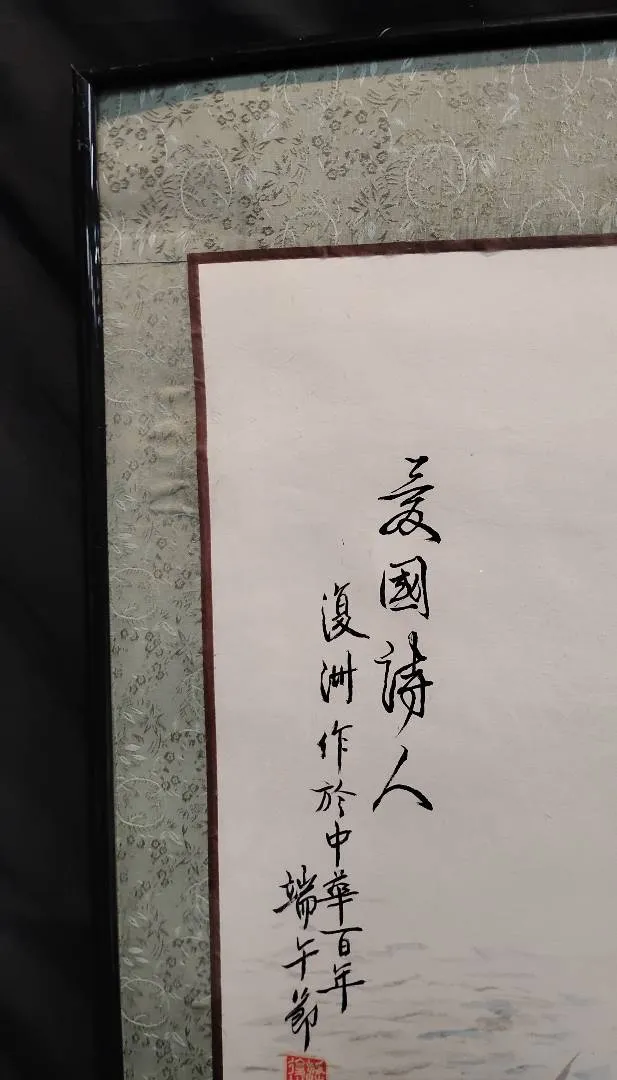 爱國詩人
復洲作於中華百年
端午節